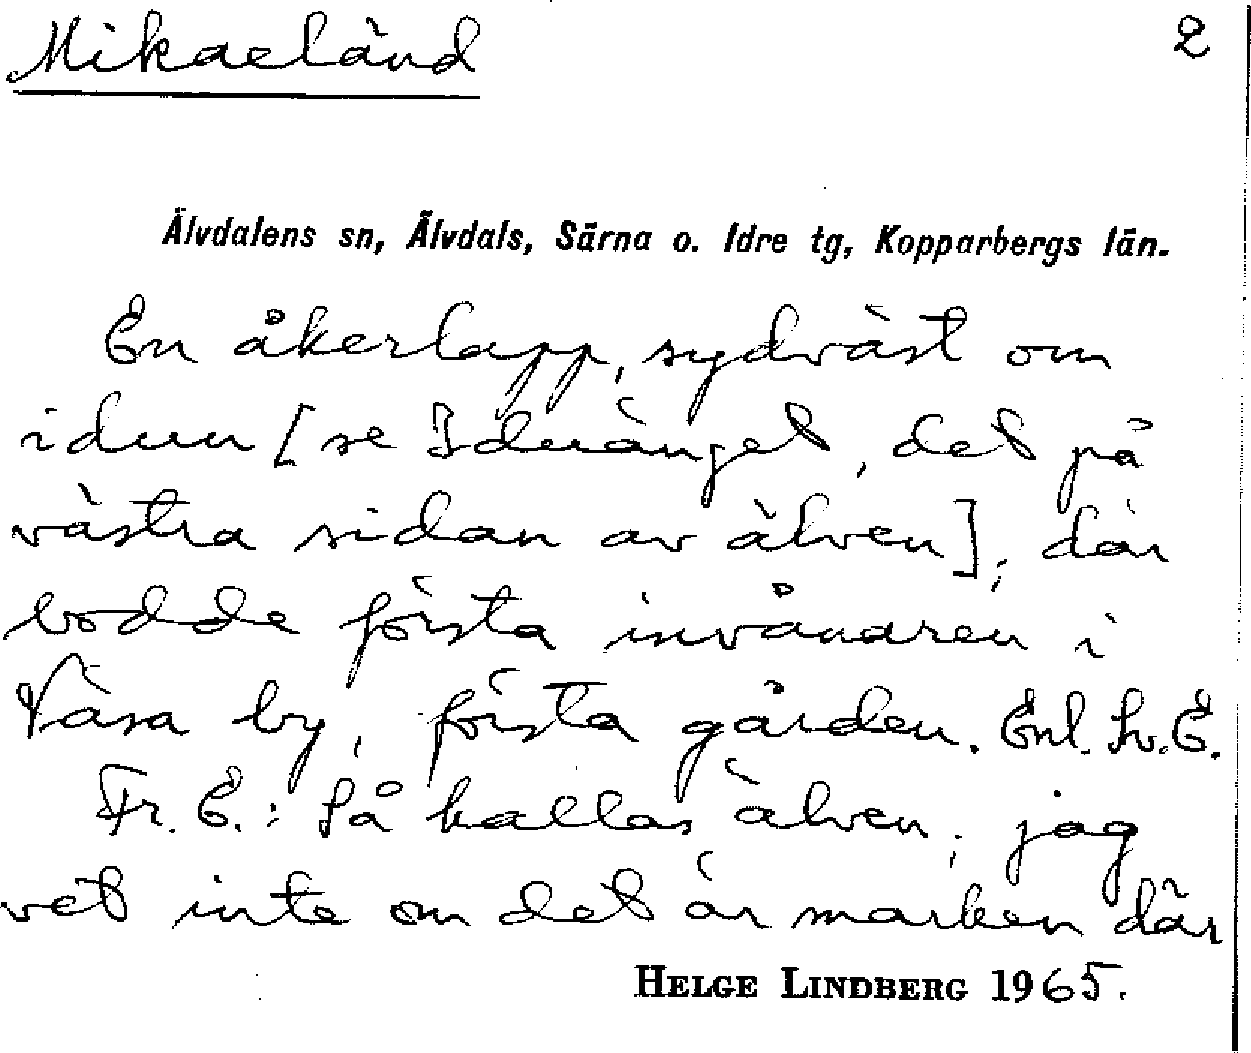 Mikaeländ 2
Älvdalens sn, Älvdals, Särna o. Idre tg, Kopparbergs län.
En åkerlapp, sydväst om
idun [se Idunänget, det på
västra sidan av älven]; där
bodde första invånaren i
Våsa by, första gården. Enl. Sv. E.
Fr. E.: Så kallas älven; jag
vet inte om det är marken där
HELGE LINDBERG 1965.